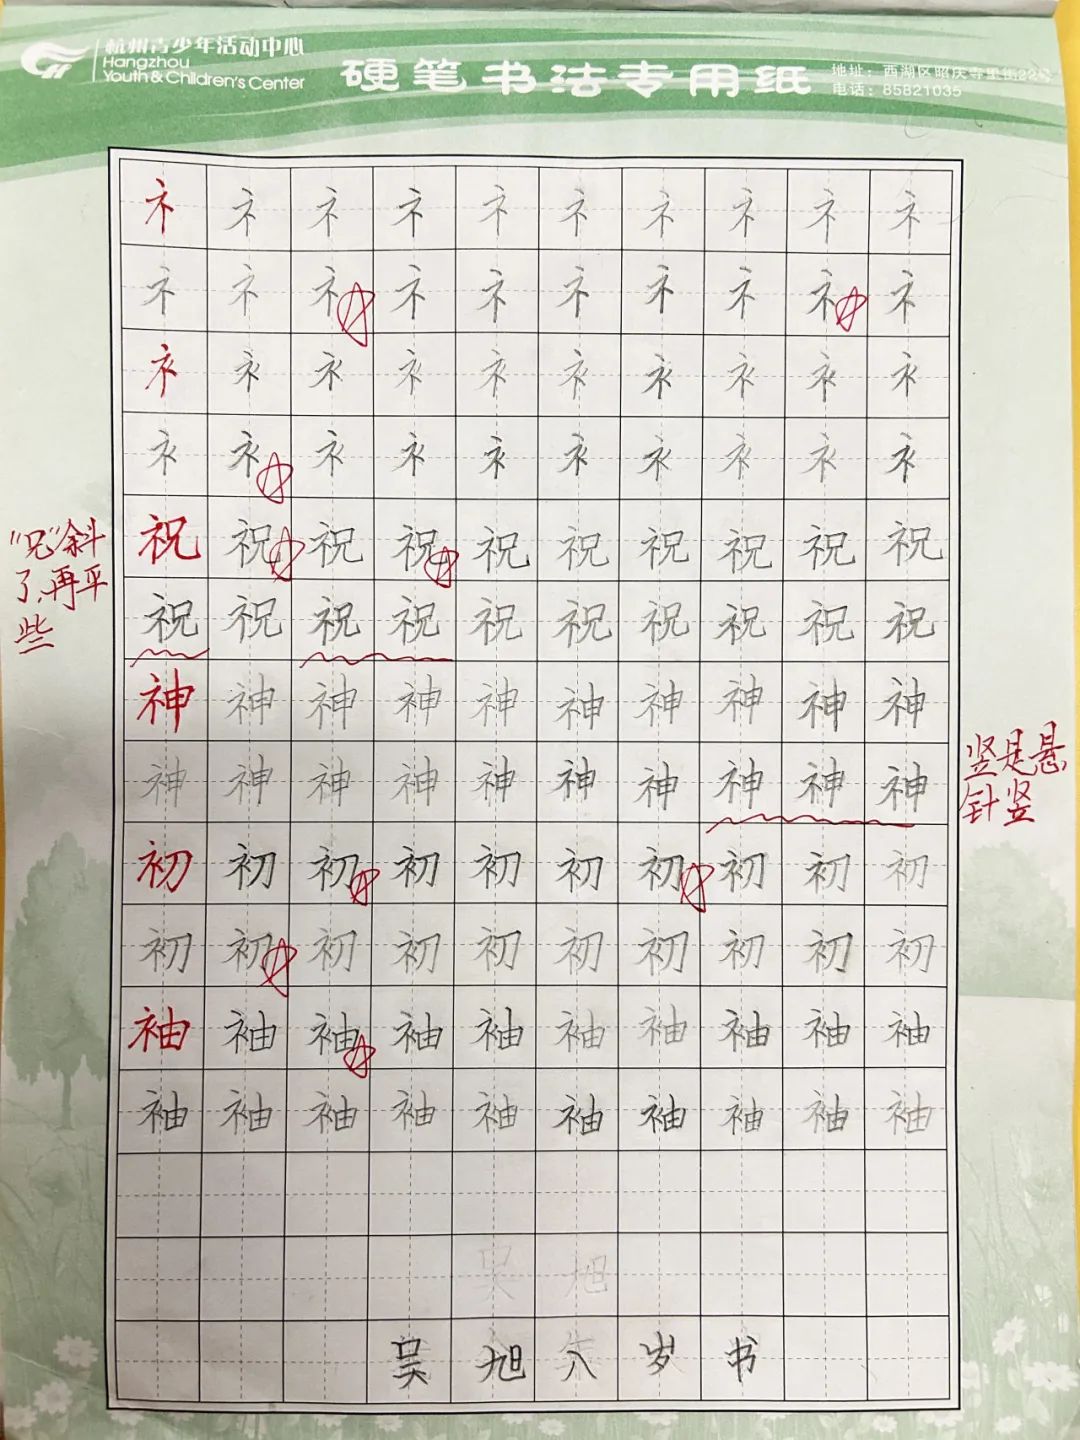 杭州青少年活动中心
Hangzhou
Youth & Children's Center
硬笔书法专用纸
地址：西湖区昭庆寺里街22号
电话：85821035
礻礻礻礻礻礻礻礻礻礻
礻礻礻礻礻礻礻礻礻礻
衤衤衤衤衤衤衤衤衤衤
衤衤衤衤衤衤衤衤衤衤
祝祝祝祝祝祝祝祝祝祝
"兄"斜
了，再平
些
祝祝祝祝祝祝祝祝祝祝
神神神神神神神神神神
神神神神神神神神神神
竖是悬
针竖
初初初初初初初初初初
初初初初初初初初初初
袖袖袖袖袖袖袖袖袖袖
袖袖袖袖袖袖袖袖袖袖
吴旭
吴旭八岁书